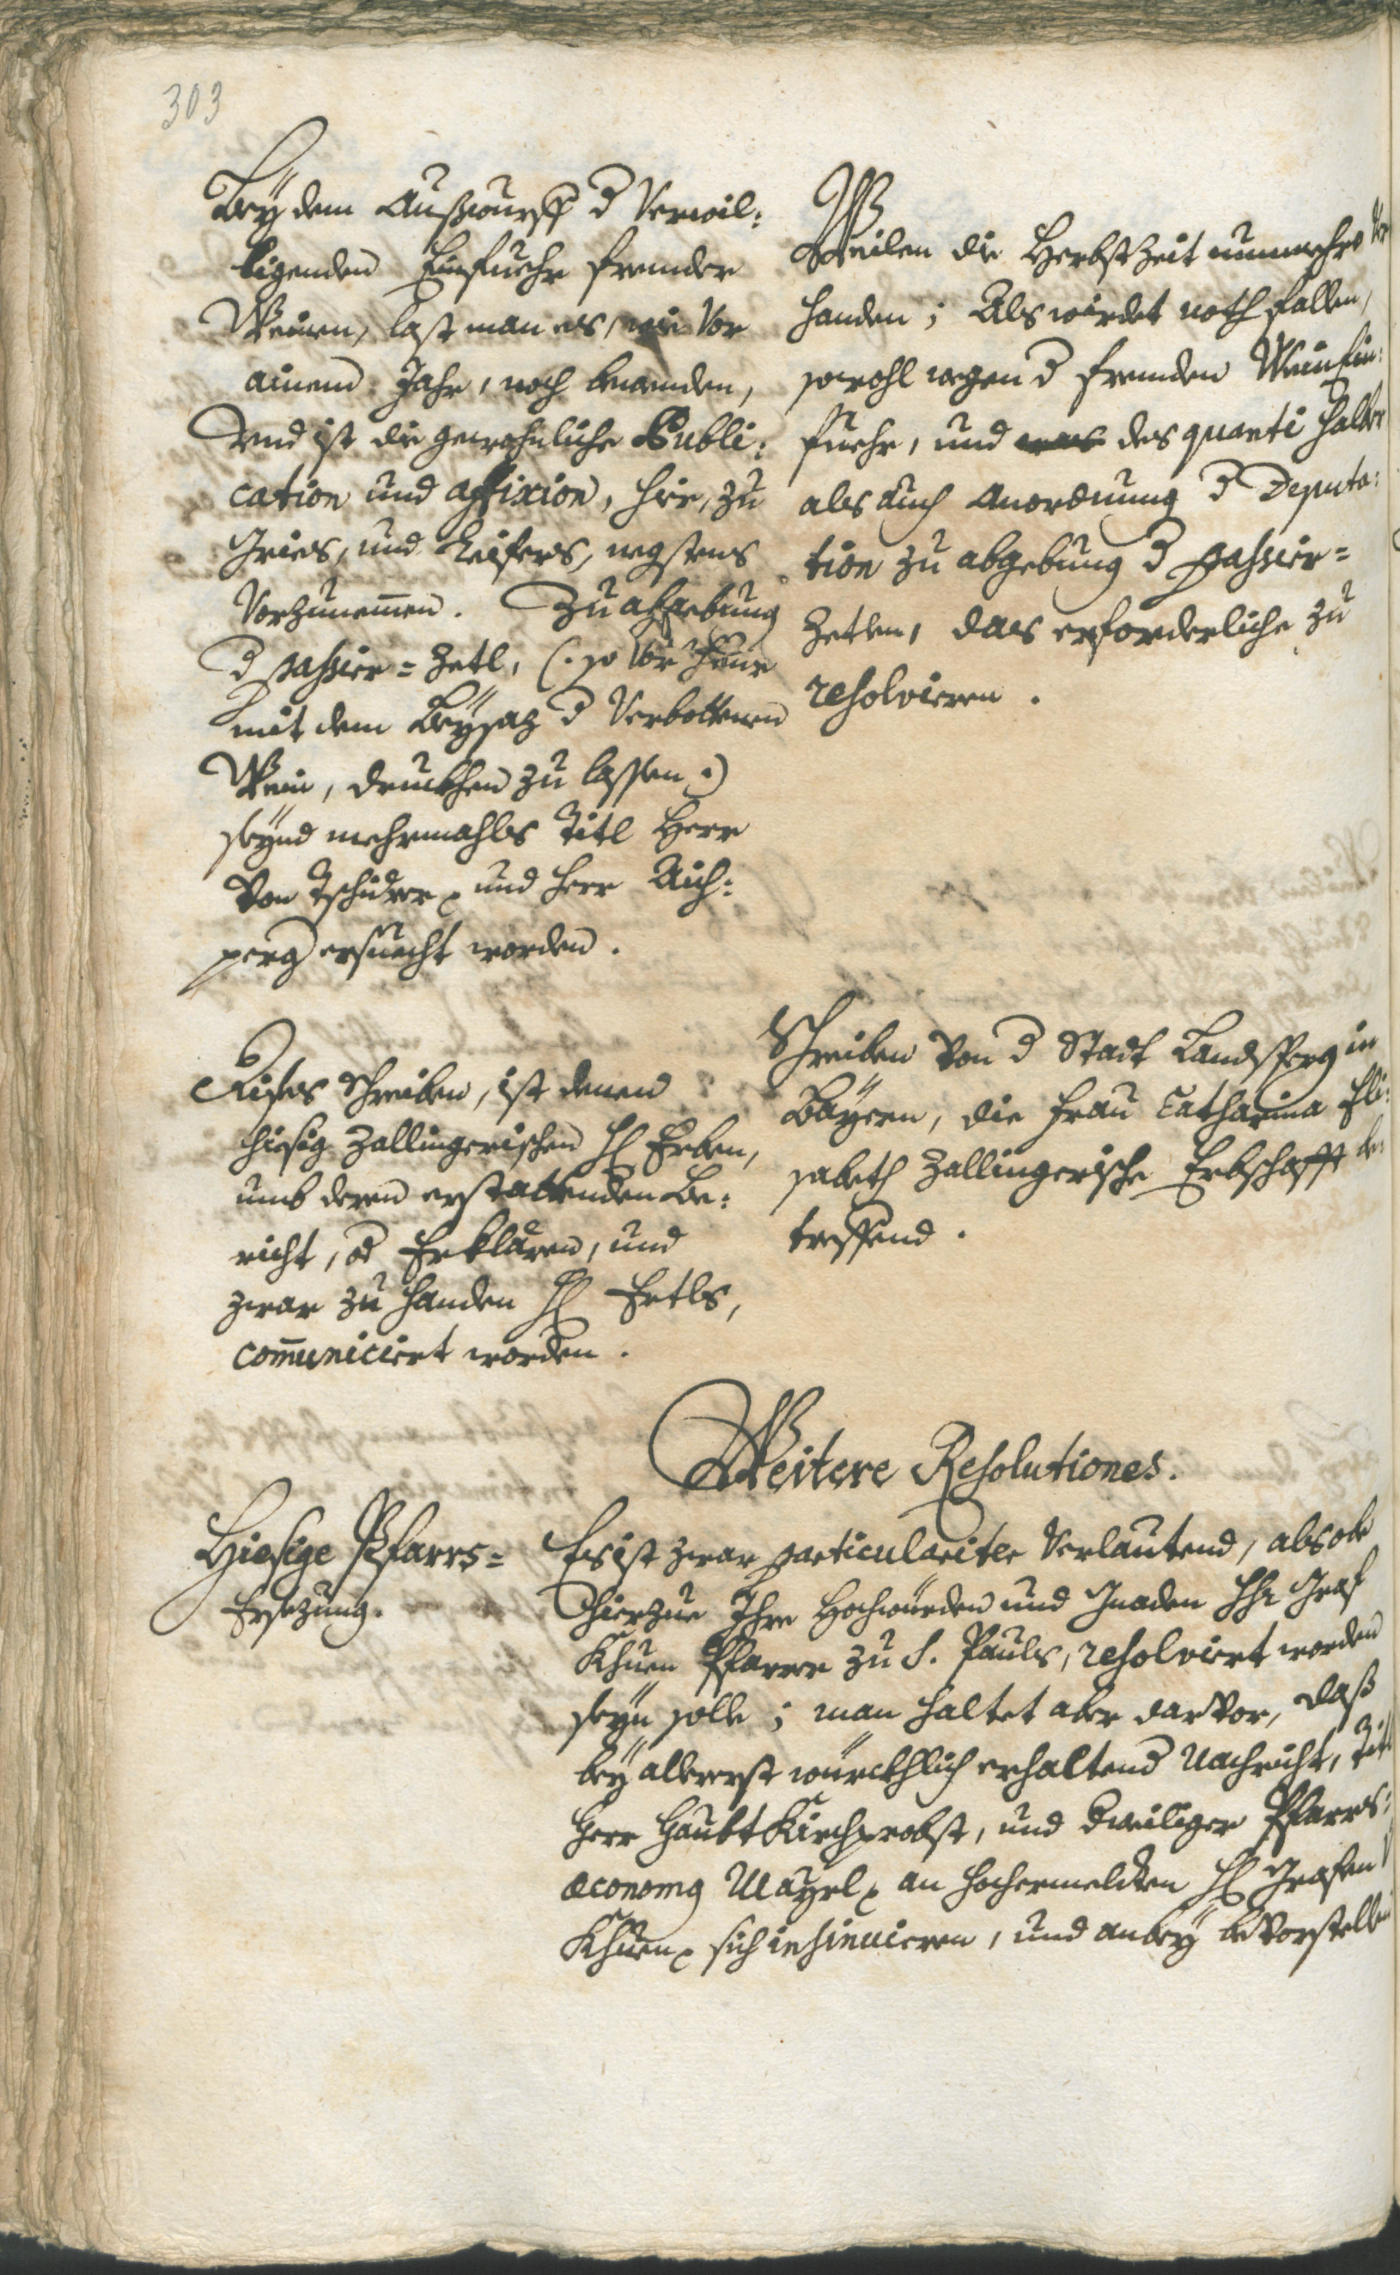 303
Bey dem Außwurff d Verwil:
ligenden Einfuehr frembder
Weinen, last man es, wie vor
ainem Jahr, noch bewenden,
Vnd ist die gewohnliche Publi:
cation und affixion, hier, zu
Gries, und Leifers, negstens
vorzunemen. Zu abgebung
d passier=Zetl, (: so vor heur
mit dem Beysaz d Verbottenen
Wein, druckhen zu lassen :)
seynd mehrmahls Titl Herr
von Tschiderer, und Herr Aich:
perg ersuecht worden.
Weilen die Herbstzeit nunmehro vor
handen; Als wirdet noth fallen,
sowohl wegen d frembden Weinein:
fuehr, und des quanti halber
als auch Anordnung d Deputa:
tion zu abgebung d passier=
Zetlen, das erforderliche zu
resolvieren.
Dises Schreiben, ist denen
hiesig Zallingerischen H Erben,
umb deren erstattenden Be:
richt, od Erklären, und
zwar zu handen H Ertls,
communiciert worden.
Schreiben von d Statt Landsperg in
Bayren, die Frau Catharina Eli:
sabeth Zallingerische Erbschafft be:
treffend.
Weitere Resolutiones.
Hiesige Pfarrs=
Ersezung.
Es ist zwar particulariter verlautend, als ob
hierzue Ihro Hochwürden und Gnaden HH Graf
Khuen Pfarrer zu S. Pauls, resolviert worden
seyn solle; man haltet aber darvor, daß
bey allererst würckhlich erhaltend Nachricht, Titl
Herr Haubt Kirchprobst, und dweiliger Pfarrs:
œconomg Mayrl, an hochermeldten H Grafen
Khuen, sich insinuieren, und anbey bevorstellen